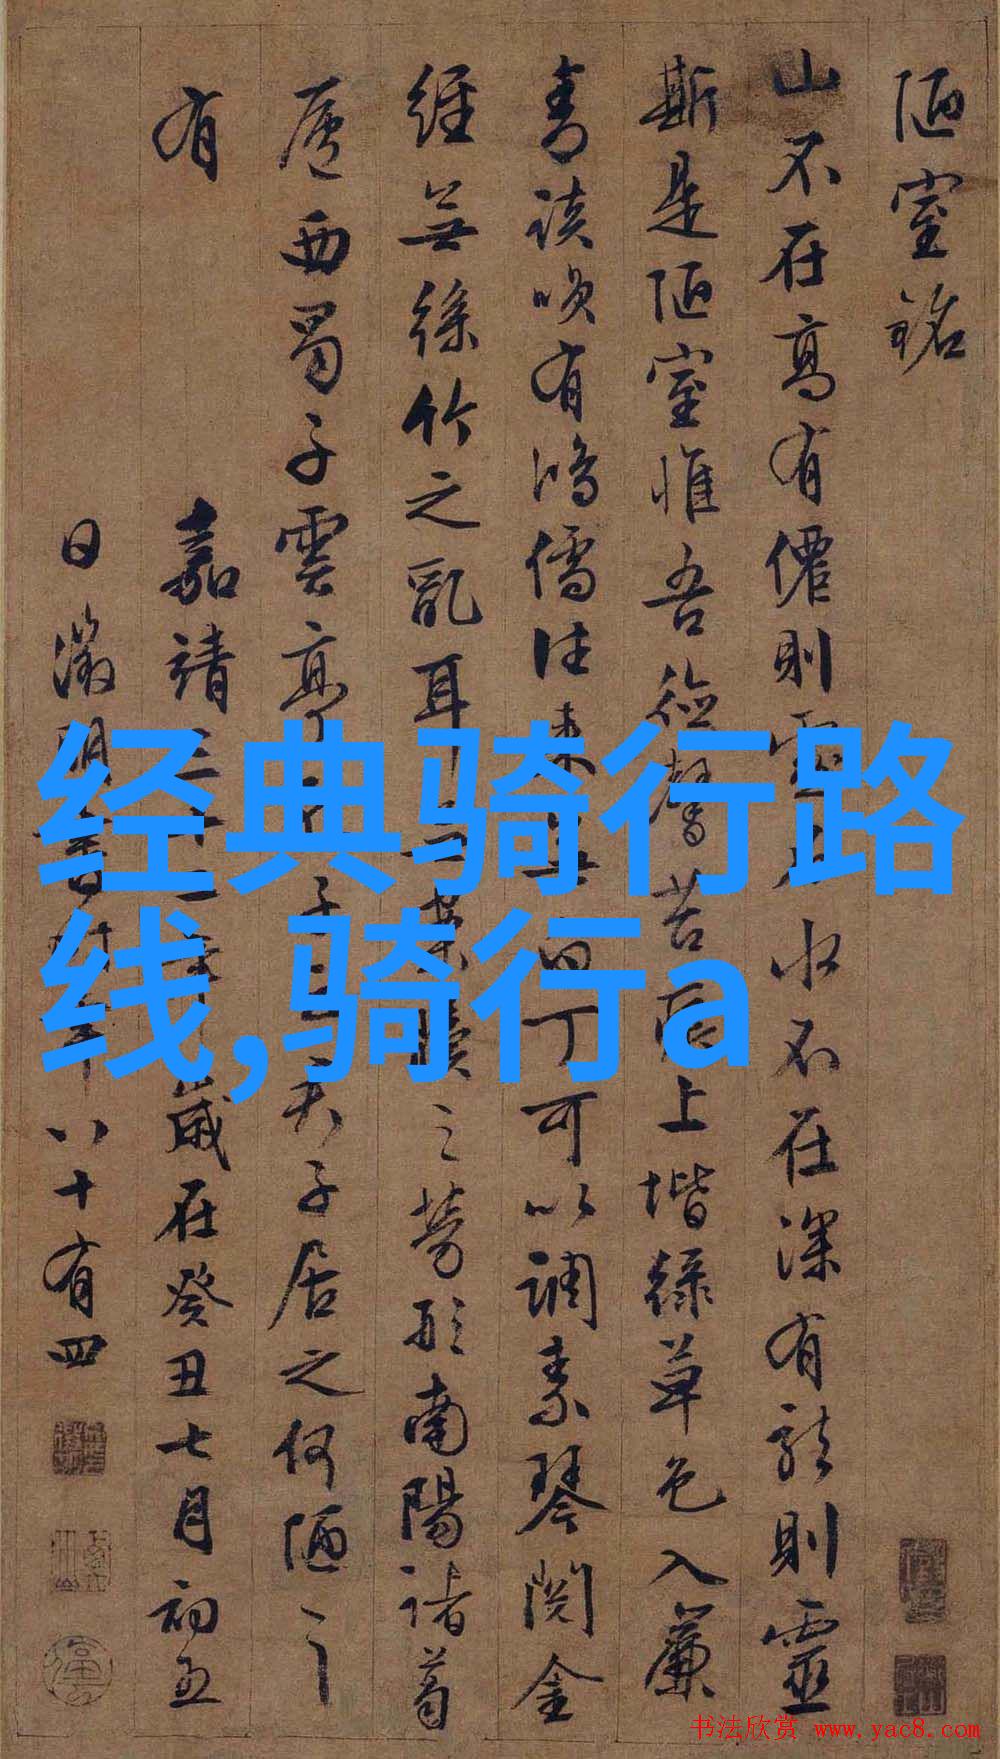 陋室銘
山不在高有僊則水不在深有龍則靈
斯是陋室惟吾德馨苔痕上堦綠草色入簾
青談咲有鴻儒往來無白丁可以調素琴閱金
經無絲竹之亂耳無案牘之勞形南陽諸葛
廬西蜀子雲亭子居之何陋之
有 嘉靖三十二年歲在癸丑七月初五
日徵明書時年八十有四
经典骑行路
线,骑行a
书法欣赏 www.yac8.com